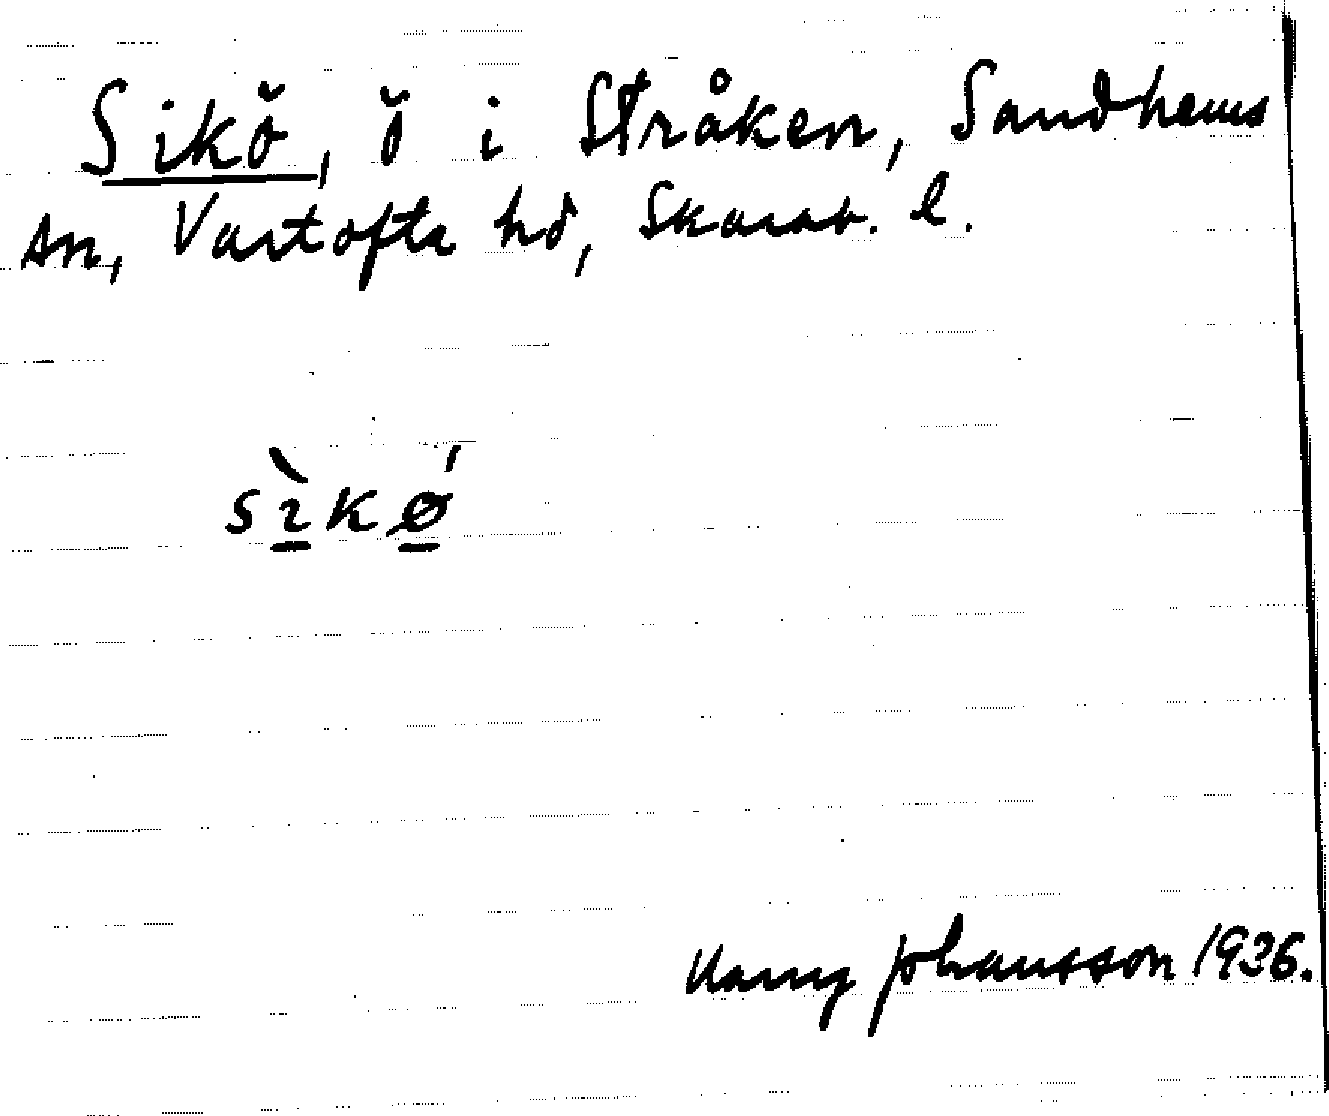 Sikö, ö i Stråken, Sandhems
sn, Vartofta hd, Skarab. l.
sìkø´
Harry Johansson 1936.